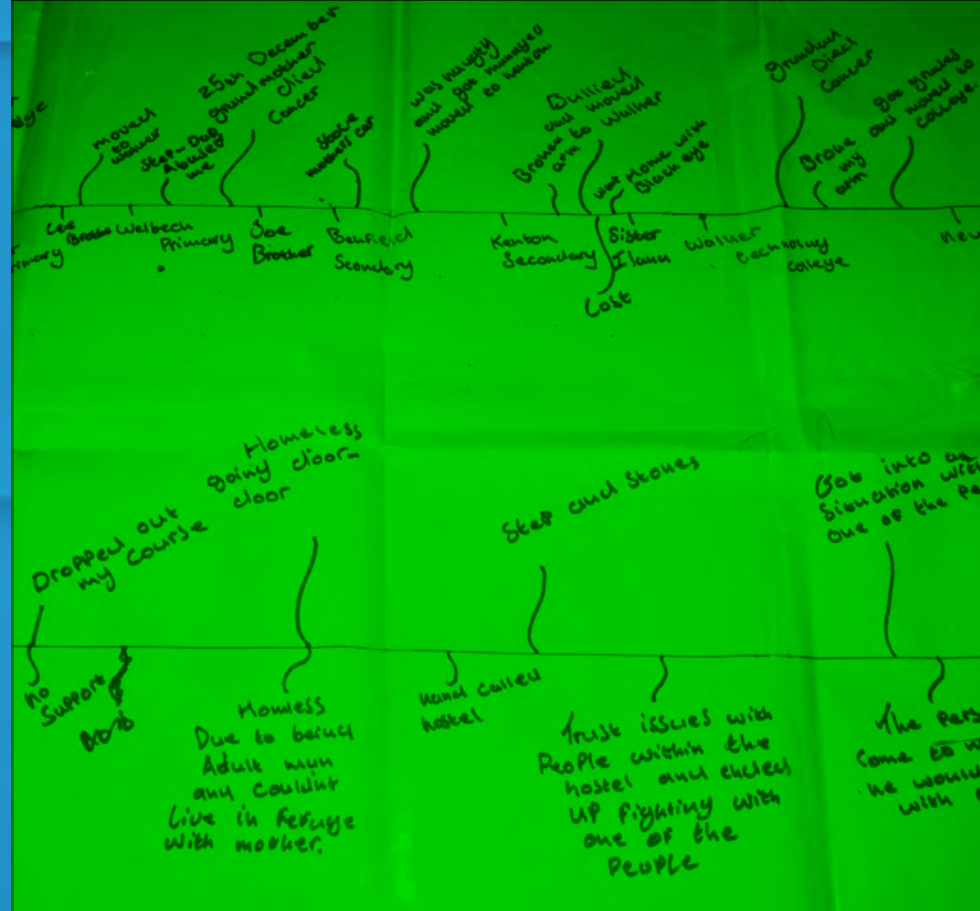 moved
to
walker
Step-Dad
Abused
me
25th December
grandmother
died
Cancer
Stole
mothers car
was naughty
and got managed
moved to kenton
Broken
arm
Bullied
and moved
to Walker
went Home with
Black eye
Grandad
Died
Cancer
Broke
my
arm
got grades
and moved to
college
Lee
Brother
Welbech
Primary
Joe
Brother
Benfield
Secondary
Kenton
Secondary
Lost
Sister
Walker
technology
college
new
Dropped out
my course
Homeless
going door-
door
Step and Stones
Got into an
Situation with
one of the
no
Support
Homless
Due to being
Adult man
any couldnt
Live in Fefuge
with mother.
hostel
Trust issues with
People within the
hostel and ended
UP fighting with
one of the
People
The
Come to
he would
with